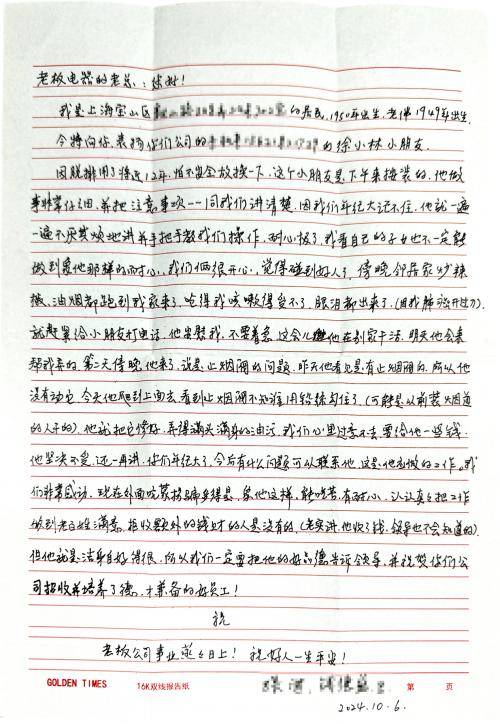 老板电器的老总：您好！
我是上海宝山区 的居民，1950年出生，老伴1949年出生。
今特向你表扬你们公司的 的徐小林小朋友。
因脱排用了将近12年，怕不安全故换一下，这个小朋友是下午来按装的，他做
事非常仔细，并把注意事项一一同我们讲清楚，因我们年纪大记不住，他就一遍
一遍不厌其烦地讲并手把手教我们操作，耐心极了，我看自己的子女也不一定能
做到像他那样的耐心，我们俩很开心，觉得碰到好人了，傍晚邻居家炒辣
椒，油烟都跑到我家来了，呛得我咳嗽得受不了，眼泪都出来了，（因我肺 开过刀）
就赶紧给小朋友打电话，他安慰我，不要着急，这会儿 他在别家干活，明天他会来
帮我弄的，第二天傍晚他来了，说是止烟阀的问题，昨天他看见是有止烟阀的，所以他
没有动它，今天他爬到上面去，看到止烟阀不知谁用铅丝勾住了，（可能是以前装烟道
的人干的），他就把它修好，弄得满头满身的油污，我们心里过意不去，要给他一些钱，
他坚决不受，还一再讲，你们年纪大了，今后有什么问题可以联系他，这是他应做的工作。我
们非常感动，现在外面坑蒙拐骗多得是，象他这样，能吃苦，有耐心，认认真真把工作
做到老百姓满意，拒收额外的钱财的人是没有的，（老实讲，他收了钱，领导也不会知道的）
但他就是洁身自好得很，所以我们一定要把他的好品德告诉领导，并祝贺你们公
司招收并培养了德、才兼备的好员工！
祝
老板公司事业蒸蒸日上！ 祝好人一生平安！
GOLDEN TIMES 16K双线报告纸 第 页
2024.10.6.